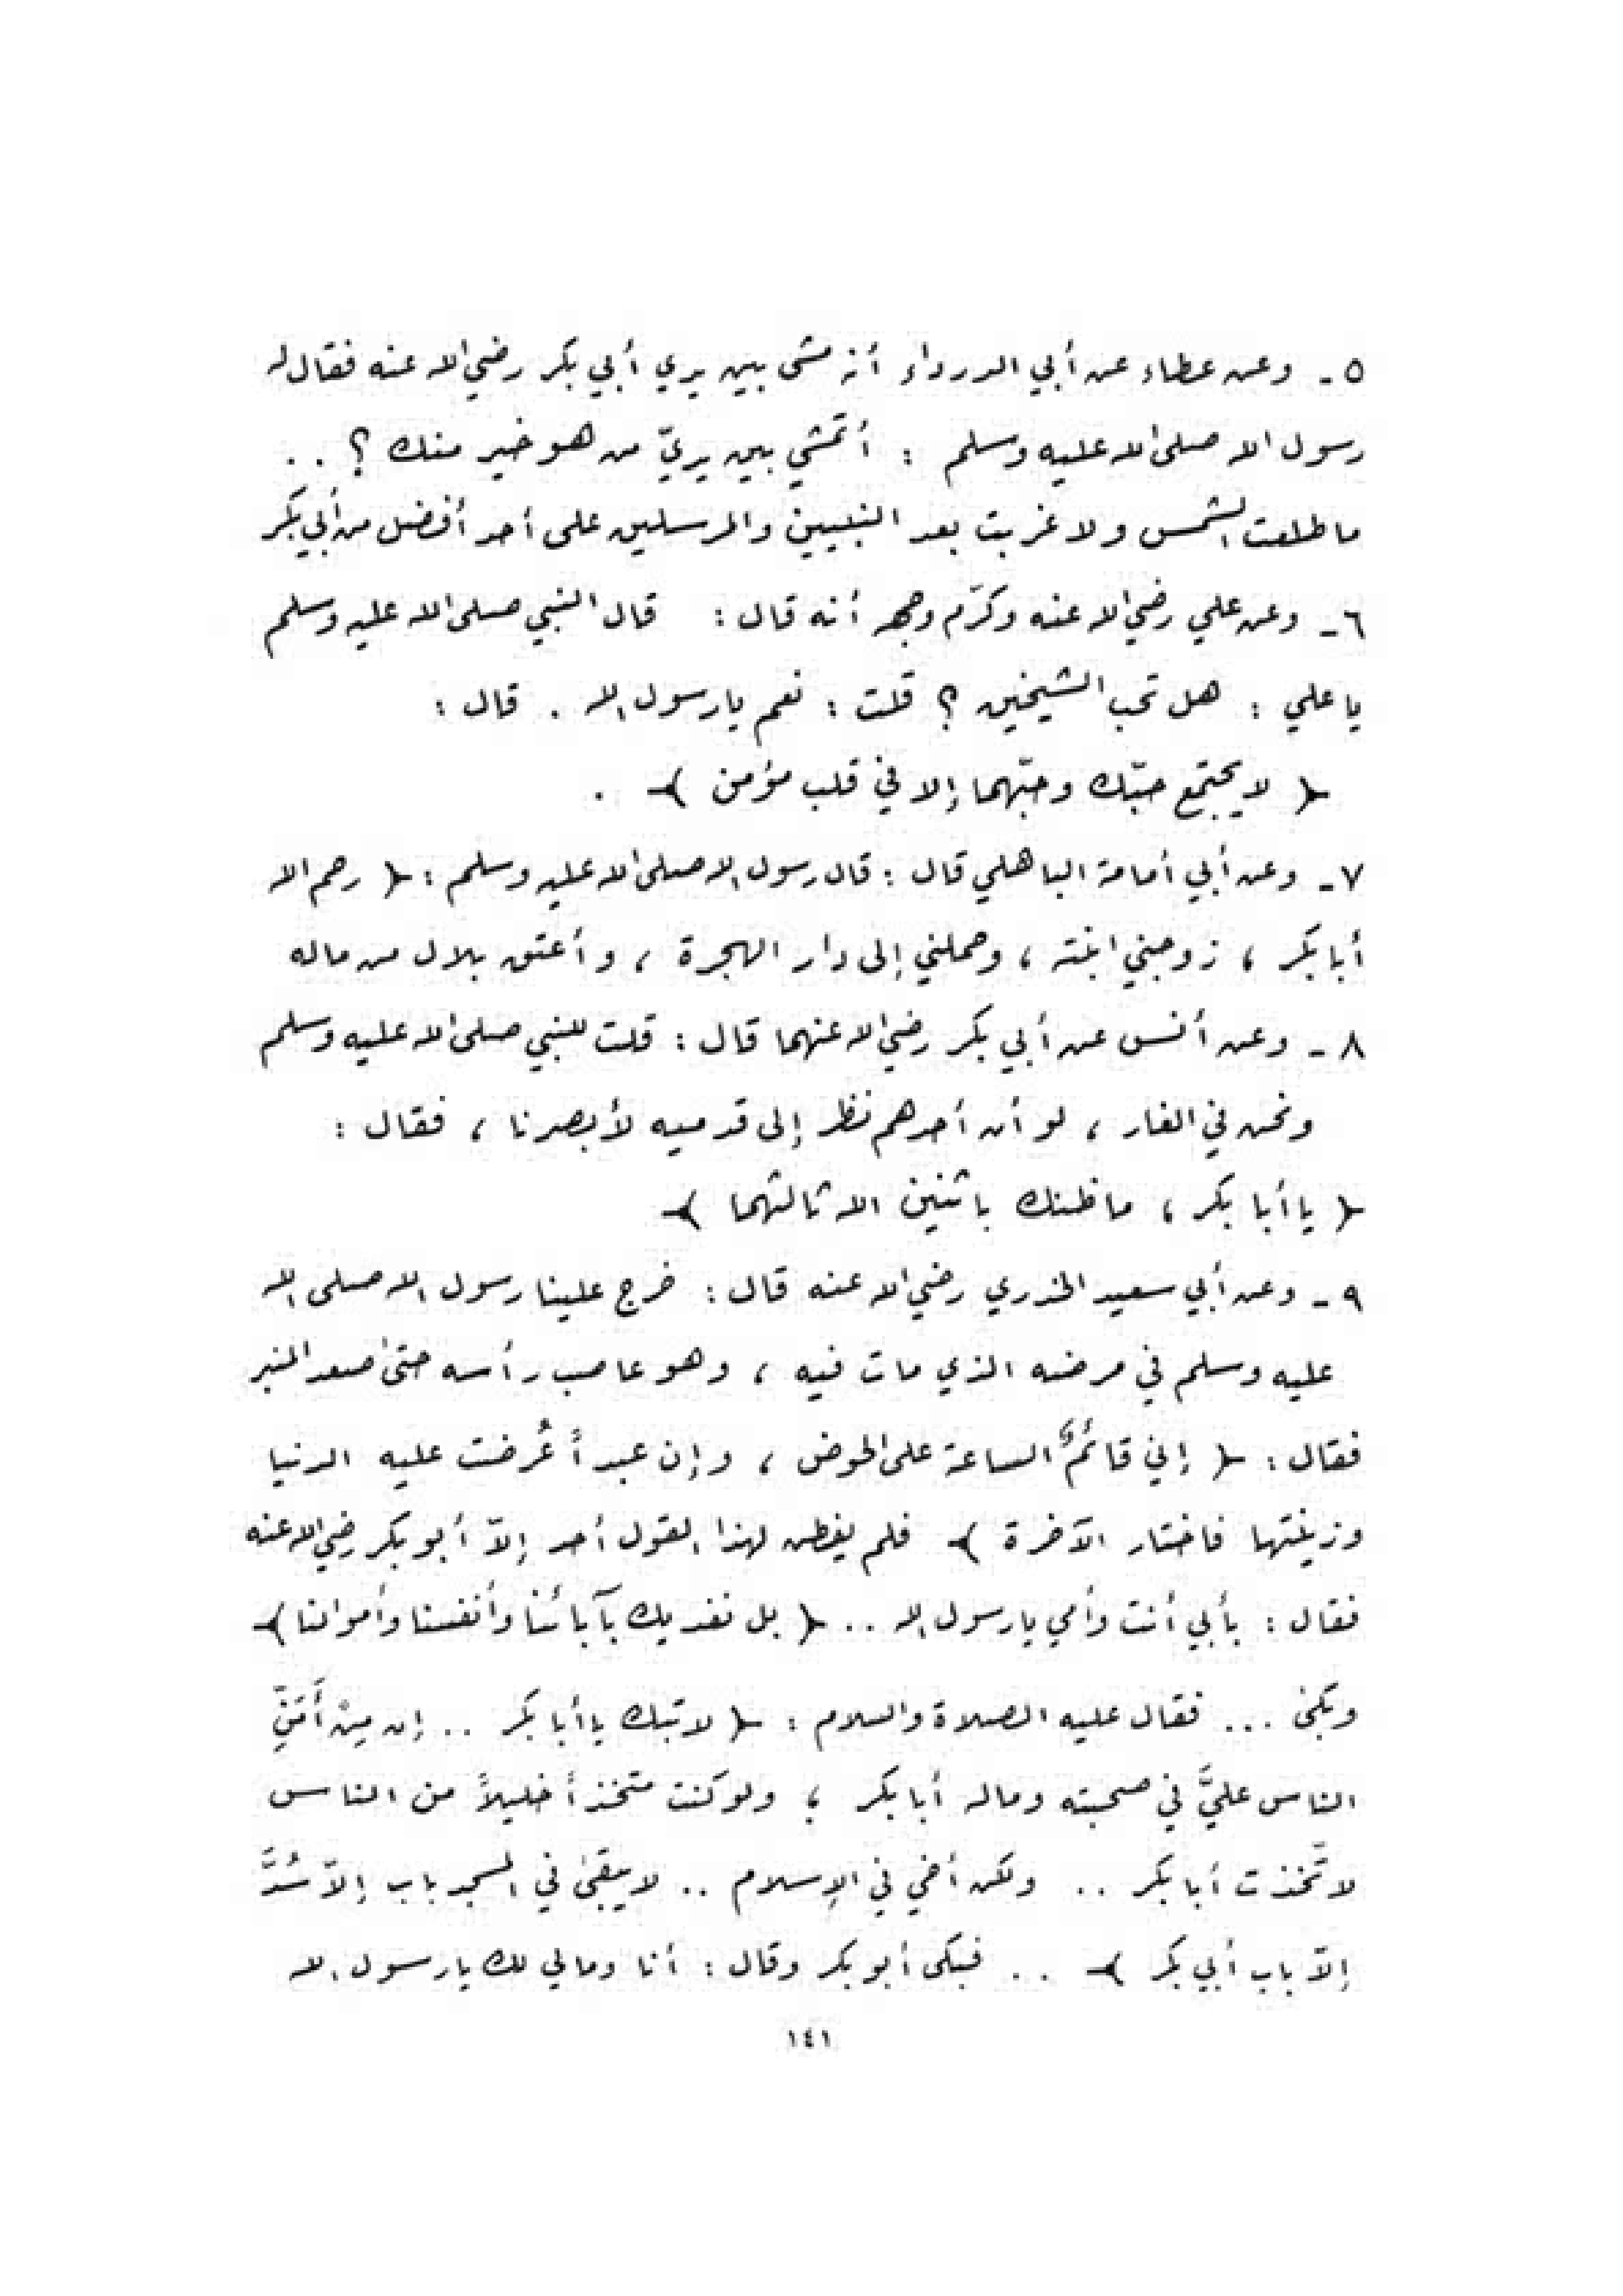 ٥ - وعن عطاء عن أبي الدرداء أنه مشى بين يدي أبي بكر رضي الله عنه فقال له
رسول الله صلى الله عليه وسلم : أتمشي بين يديّ من هو خير منك ؟ ..
ما طلعت الشمس ولا غربت بعد النبيين والمرسلين على أحد أفضل من أبي بكر
٦ - وعن علي رضي الله عنه وكرّم وجهه أنه قال : قال النبي صلى الله عليه وسلم
يا علي : هل تحب الشيخين ؟ قلت : نعم يا رسول الله . قال :
﴿ لا يجتمع حبّك وحبّهما إلا في قلب مؤمن ﴾ .
٧ - وعن أبي أمامة الباهلي قال : قال رسول الله صلى الله عليه وسلم : ﴿ رحم الله
أبا بكر ، زوجني ابنته ، وحملني إلى دار الهجرة ، وأعتق بلال من ماله
٨ - وعن أنس عن أبي بكر رضي الله عنهما قال : قلت للنبي صلى الله عليه وسلم
ونحن في الغار ، لو أن أحدهم نظر إلى قدميه لأبصرنا ، فقال :
﴿ يا أبا بكر ، ما ظنك باثنين الله ثالثهما ﴾
٩ - وعن أبي سعيد الخدري رضي الله عنه قال : خرج علينا رسول الله صلى الله
عليه وسلم في مرضه الذي مات فيه ، وهو عاصب رأسه حتى صعد المنبر
فقال : ﴿ إني قائمٌ الساعة على الحوض ، وإن عبداً عُرضت عليه الدنيا
وزينتها فاختار الآخرة ﴾ فلم يفطن لهذا القول أحد إلاّ أبو بكر رضي الله عنه
فقال : بأبي أنت وأمي يا رسول الله .. ﴿ بل نفديك بآبائنا وأنفسنا وأموالنا ﴾
وبكى ... فقال عليه الصلاة والسلام : ﴿ لا تبك يا أبا بكر .. إن مِنْ أَمَنِّ
الناس عليَّ في صحبته وماله أبا بكر ؛ ولو كنت متخذاً خليلاً من الناس
لاتّخذت أبا بكر .. ولكن أخي في الإسلام .. لا يبقى في المسجد باب إلاّ سُدَّ
إلاّ باب أبي بكر ﴾ .. فبكى أبو بكر وقال : أنا ومالي لك يا رسول الله
١٤١